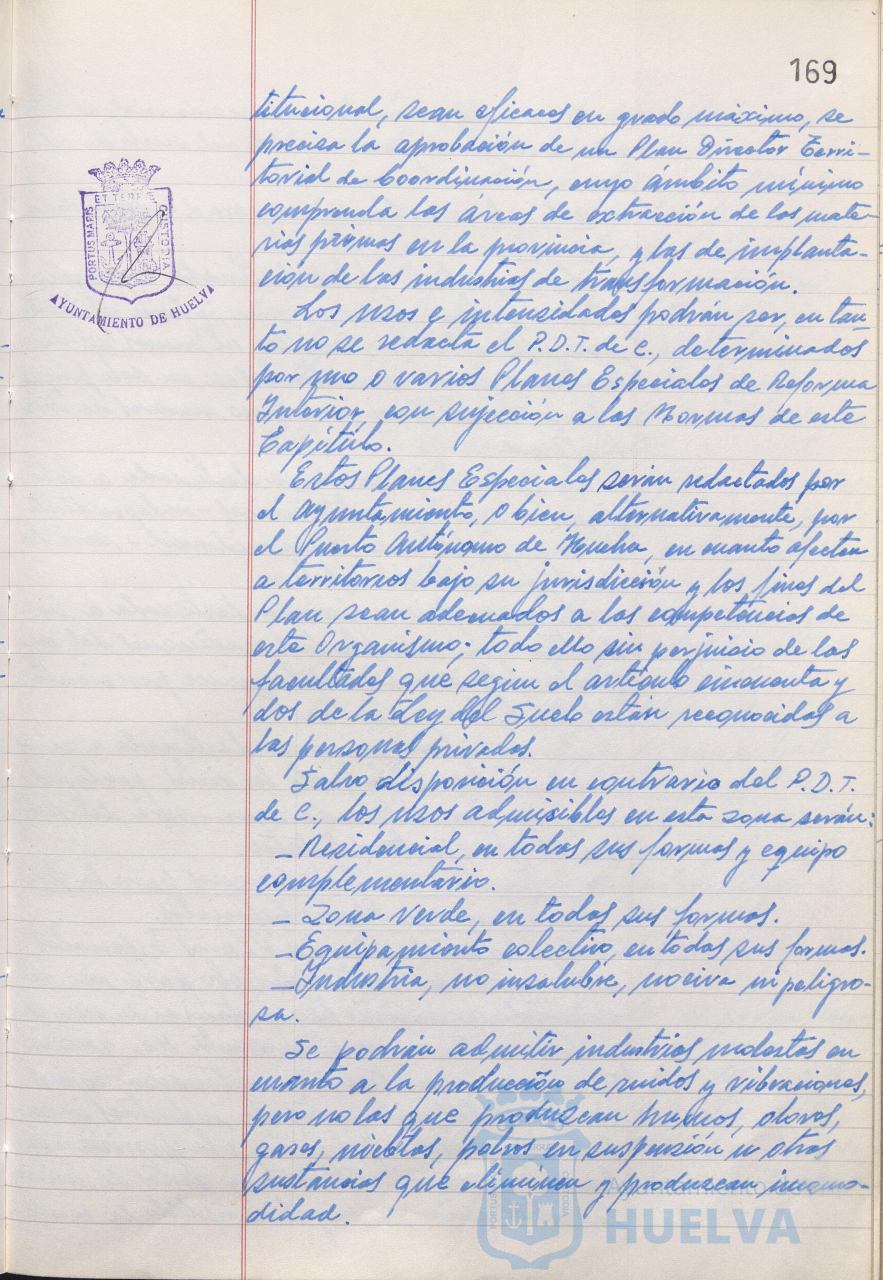 169
titucional, sean eficaces en grado máximo, se
precisa la aprobación de un Plan Director Terri-
torial de Coordinación, cuyo ámbito mínimo
comprenda las áreas de extracción de las mate-
rias primas en la provincia, y las de implanta-
ción de las industrias de transformación.
Los usos e intensidades podrán ser, en tan-
to no se redacta el P.D.T. de C., determinados
por uno o varios Planes Especiales de Reforma
Interior, con sujección a las Normas de este
Capítulo.
Estos Planes Especiales serán redactados por
el Ayuntamiento, o bien, alternativamente, por
el Puerto Autónomo de Huelva, en cuanto afecten
a territorios bajo su jurisdicción y los fines del
Plan sean adecuados a las competencias de
este Organismo; todo ello sin perjuicio de las
facultades que según el artículo cincuenta y
dos de la Ley del Suelo están reconocidas a
las personas privadas.
Salvo disposición en contrario del P.D.T.
de C., los usos admisibles en esta zona serán:
- Residencial, en todas sus formas y equipo
complementario.
- Zona verde, en todas sus formas.
- Equipamiento colectivo, en todas sus formas.
- Industria, no insalubre, nociva ni peligro-
sa.
Se podrán admitir industrias molestas en
cuanto a la producción de ruidos y vibraciones,
pero no las que produzcan humos, olores,
gases, nieblas, polvos en suspensión u otras
sustancias que eliminen y produzcan incomo-
didad.
PORTUS MARIS ET TERRE CUSTODIA
AYUNTAMIENTO DE HUELVA
HUELVA